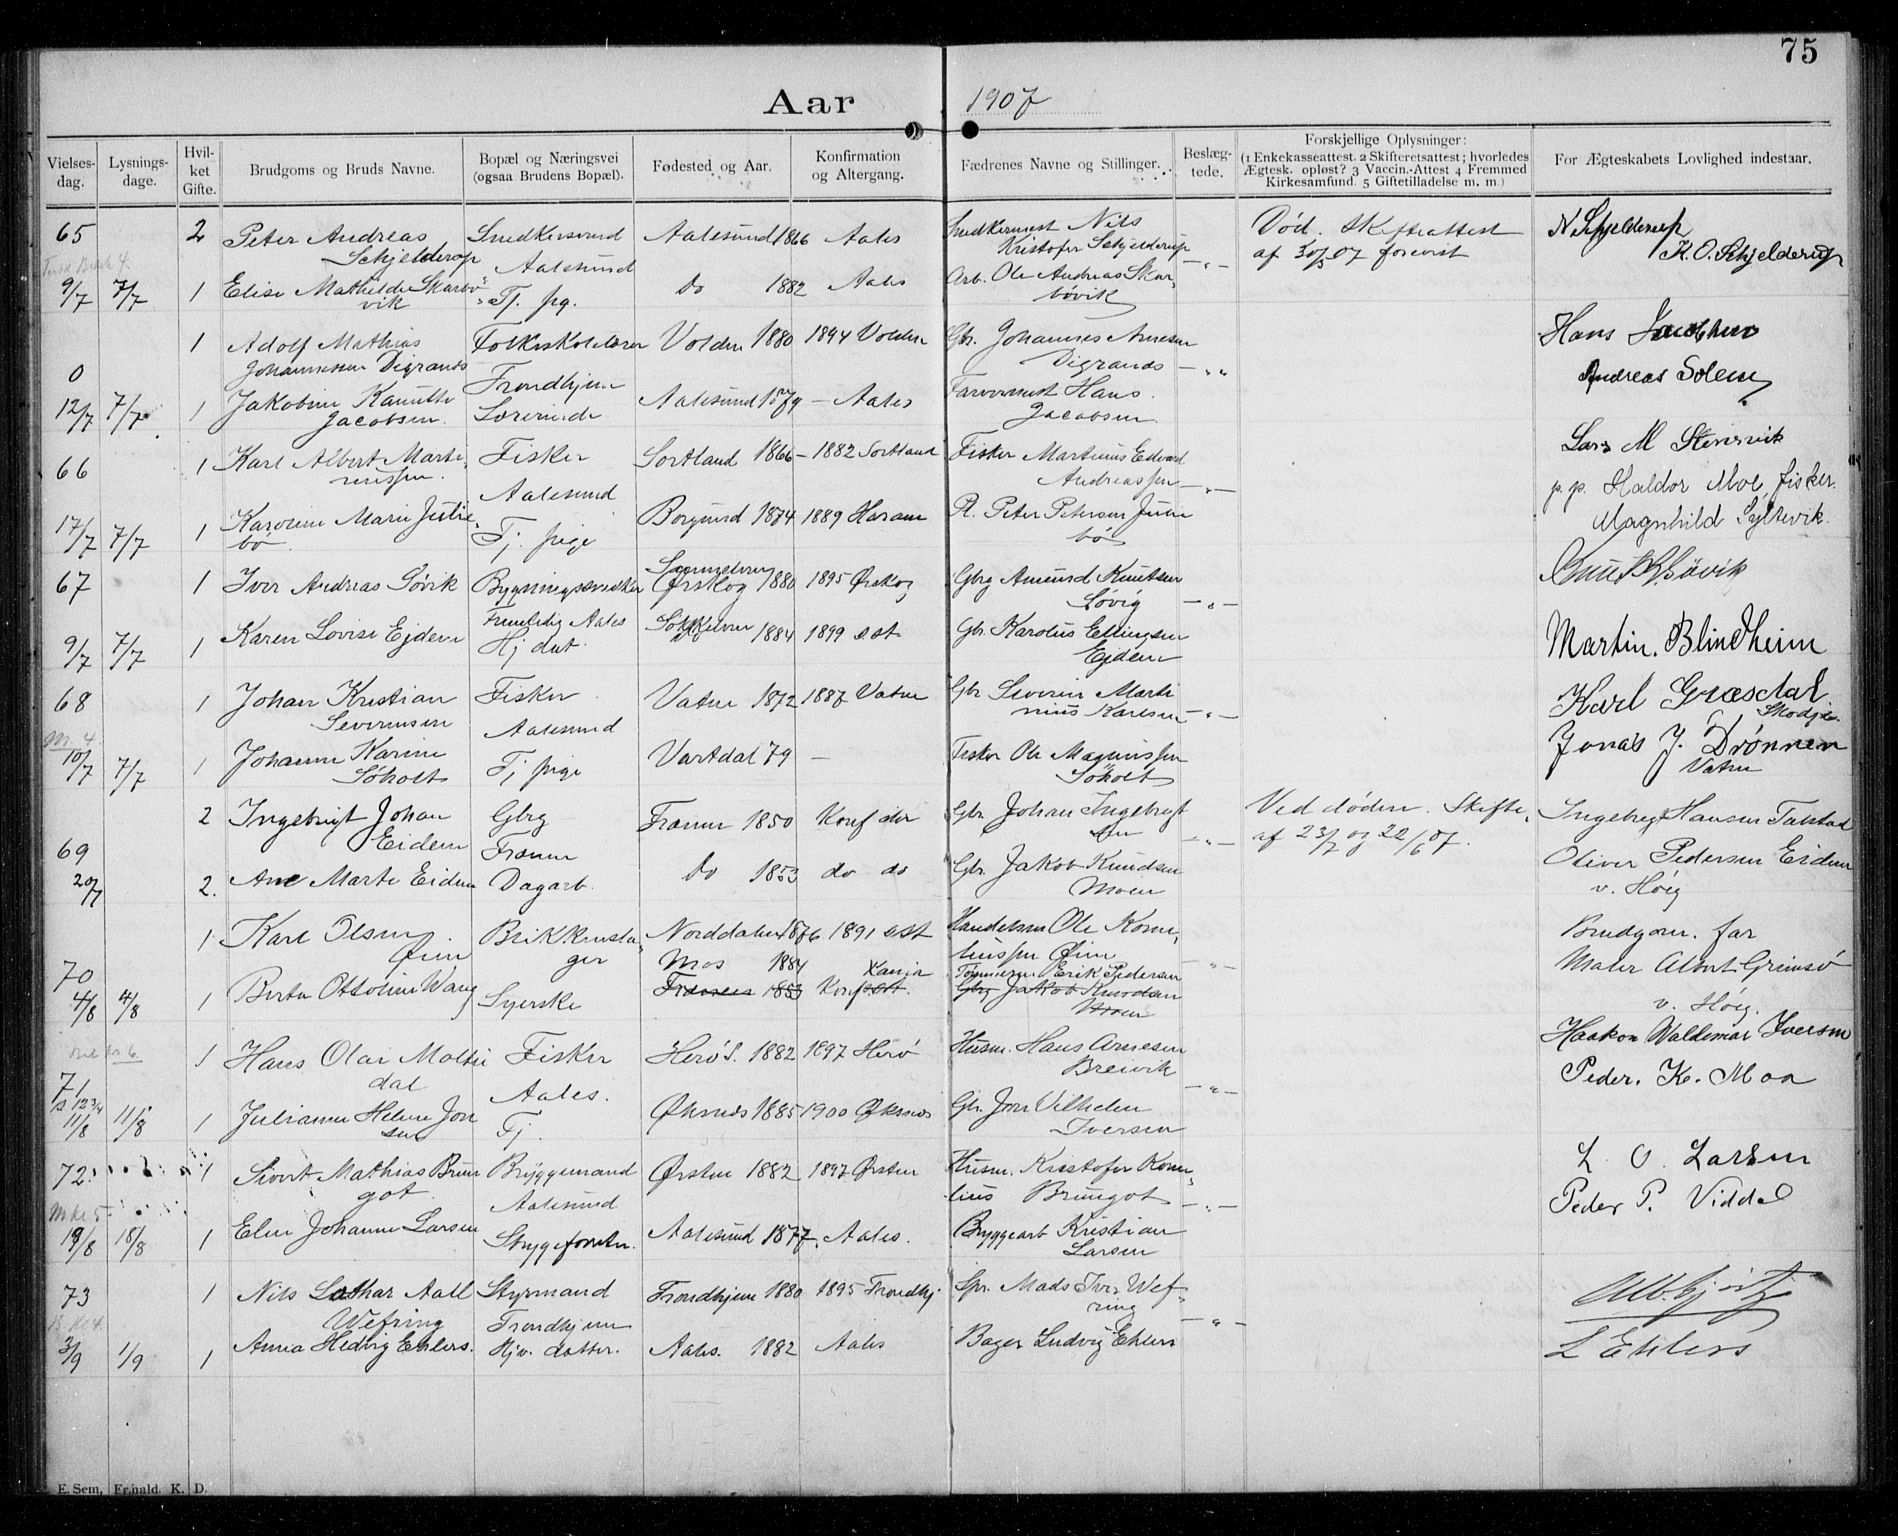 75
Aar 1907
Vielses-dag. Lysnings-dage. Hvil-ket Gifte. Brudgoms og Bruds Navne. Bopæl og Næringsvei (ogsaa Brudens Bopæl). Fødested og Aar. Konfirmation og Altergang. Fædrenes Navne og Stillinger. Beslæg-tede. Forskjellige Oplysninger: (1 Enkekasseattest. 2 Skifteretsattest; hvorledes Ægtesk. opløst? 3 Vaccin.-Attest 4 Fremmed Kirkesamfund. 5 Giftetilladelse m. m.) For Ægteskabets Lovlighed indestaar.
65 2 Peter Andreas Snedkersvend Aalesund 1866 Aales Snedkermest Nils Død. Skifteattest N Schjelderup
Schjelderup Aalesund Kristofer Schjelderup — „ — af 30/3 07 forevist K. O. Schjelderup
9/7 7/7 1 Elise Mathilde Skarbø- Tj. pg. Do 1882 Aales Arb. Ole Andreas Skar-
vik bøvik
1 Adolf Mathias Folkeskolelærer Volden 1880 1894 Volden Gbr. Johannes Arnesen Hans Jacobsen
0 Johannessen Digrands Trondhjem Digrands — „ Andreas Solem
12/7 7/7 1 Jakobine Kanutte Lærerinde Aalesund 1879 — Aales Hans
Jacobsen. Jacobsen
66 1 Karl Albert Marti- Fisker Sortland 1866 — 1882 Sortland Fisker Martinus Edvard Lars M Stensvik
nussen Aalesund Andreassen — „ — p. p. Haldor Moe fisker.
17/7 7/7 1 Karoline Marie Julie- Tj. pige Borgund 1874 1889 Haram P. Peter Petersen Juim Magnhild Syltevik.
bø bø
67 1 Iver Andreas Søvik Bygningssnedker Ørskog 1880 1895 Ørskog Gbrg Amund Knutsen Knut K Søvik
Søvig — „ —
9/7 7/7 1 Karen Lovise Ejdem Aales Hj dat. 1884 1899 sst Gbr. Karolus Ellingsen Martin. Blindheim
Ejdem
68 1 Johan Kristian Fisker Vatne 1872 1887 Vatne Gbr Severin Marti Karl Græsdal
Severinsen Aalesund nius Karlsen — „ — Skodje.
10/7 7/7 1 Johanne Karine Tj pige Vartdal 79 — Fisker Ole Magnussen Jonas J. Drønnen
Søholt Søholt Vatne
2 Ingebrigt Johan Gbrg Frænen 1850 Konf der Gbr Johan Ingebrigt Ved døden. Skifte Ingebrigt Hansen Talstad
69 Eidem Frænen sen — „ — af 23/7 og 22/6 07. Oliver Pedersen Eidem
20/7 2. Ane Marte Eidem Dagarb. Do 1853 do do Gbr. Jakob Knudsen v. Høig
Moen
1 Karl Olsen Norddalen 1876 1891 sst Handelsm Ole Korne- Brudgom. far
Øien Øien Maler Albert Grimsø
70 Mos 1884 Tømmerm Erik Pedersen — „ —
4/8 4/8 1 Berta Ottoline Wang Syerske Frænen 1853 Konf sst. Gbrg Jakob Knudsen v. Høig.
Moen
1 Hans Olai Molte Fisker Herø S. 1882 1897 Herø Husm. Hans Arnesen Haakon Waldemar Iversen
71 dal Aales. Breivik — „ — Peder. K. Moa
11/8 11/8 1 Julianne Helene Jon Tj. Øksnes 1885 1900 Øksnes Gbr Jon Vilhelm
sen Iversen
72. 1 Sivert Mathias Brun Bryggemand Ørsten 1882 1897 Ørsten Husm. Kristofer Korne- L. O. Larsen
got Aalesund lius Brungot — „ — Peder P. Viddal
19/8 18/8 1 Elen Johanne Larsen Aalesund 1877. Aales. Bryggearb Kristian
Larsen
73 1 Nils Lothar Aall Styrmand Trondhjem 1880 1895 Trondhj Mads Iver Wef-
Wefring Trondhjem ring — „ —
3/9 1/9 1 Anna Hedvig Ehlers. Hjv. datter. Aales. 1882 Aales Bager Ludvig Ehlers L Ehlers
E. Sem, Fr.hald. K. D.